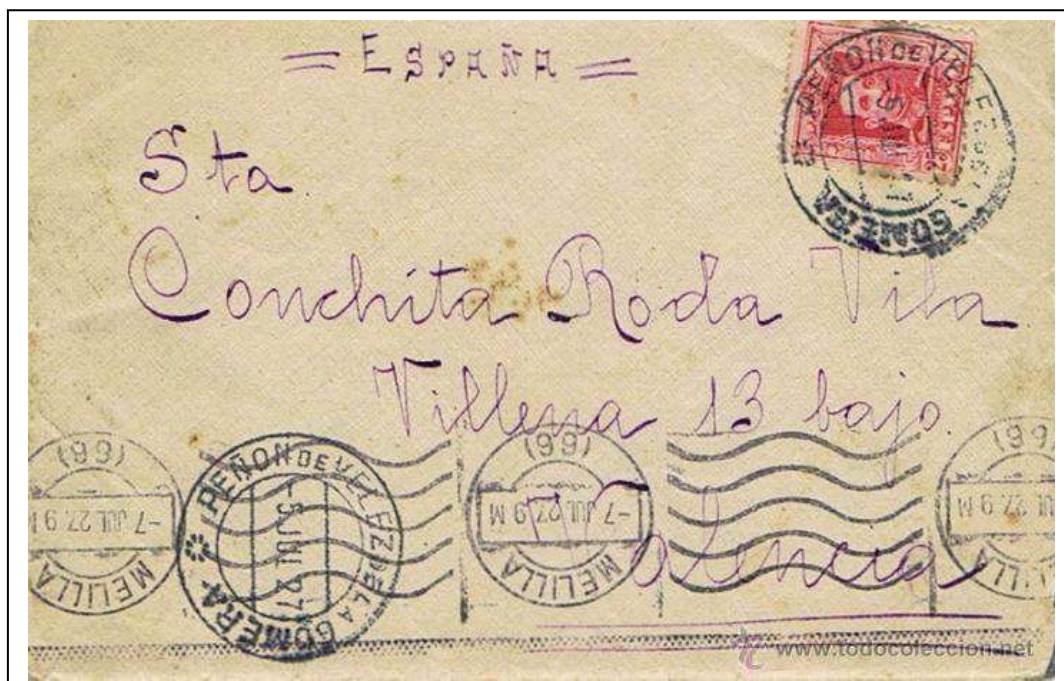 = ESPAÑA =
PEÑON DE VELEZ DE LA GOMERA
Sta.
Conchita Roda Vila
Villena 13 bajo.
Valencia
(66)
-7 JUL 27. 9 M
MELILLA
PEÑON DE VELEZ DE LA GOMERA
-5 JUL 27
(66)
-7 JUL 27. 9 M
MELILLA
(66)
JUL 27. 9 M
www.todocoleccion.net